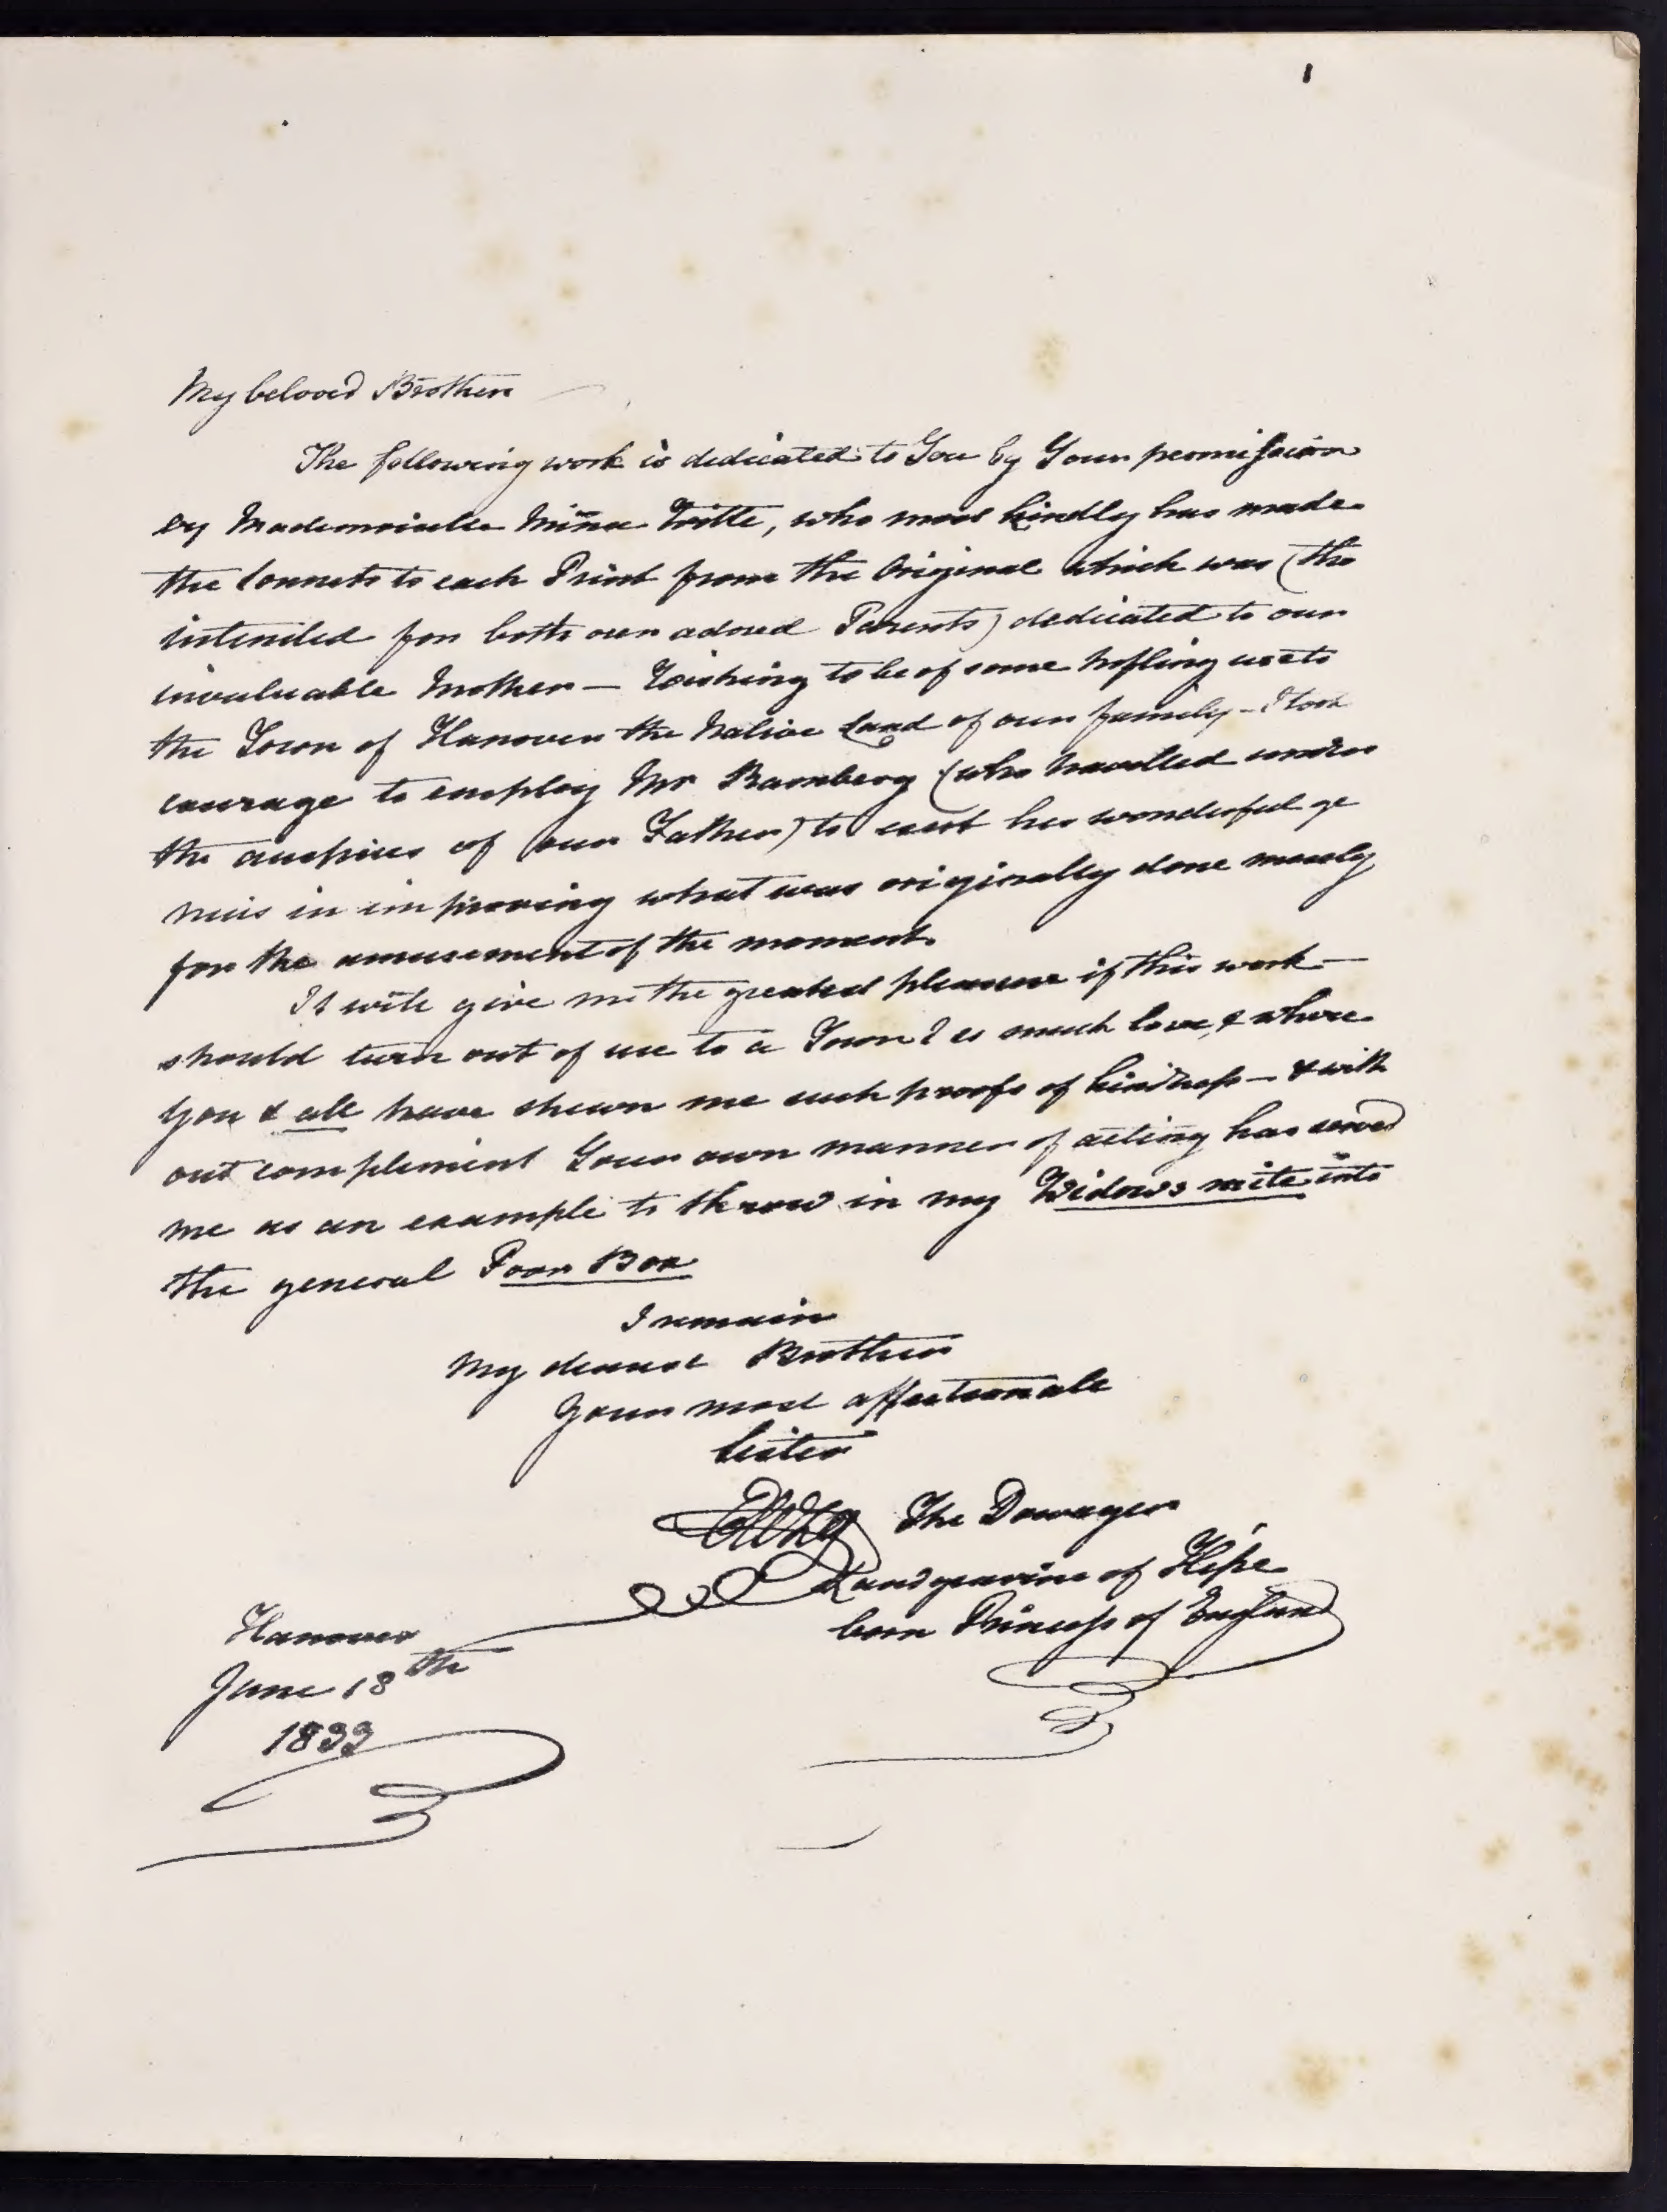 1
My beloved Brother
The following work is dedicated to You by Your permission
by Mademoiselle Minna Witte, who most kindly has made
the Sonnets to each Print from the Original which was (tho
intended for both our adored Parents) dedicated to our
invaluable Mother — Wishing to be of some trifling use to
the Town of Hanover the Native Land of our family – I took
courage to employ Mr Ramberg (who travelled under
the auspices of our Father) to exert his wonderful ge
nius in improving what was originally done merely
for the amusement of the moment.
It will give me the greatest pleasure if this work —
should turn out of use to a Town I so much love, & where
You & all have shewn me such proofs of kindness — & with
out compliment Your own manner of acting has served
me as an example to throw in my Widows mite into
the general Poor Box
I remain
My dearest Brother
Your most affectionate
Sister
The Dowager
Landgravine of Hesse
born Princess of England
Hanover
June 18th
1833